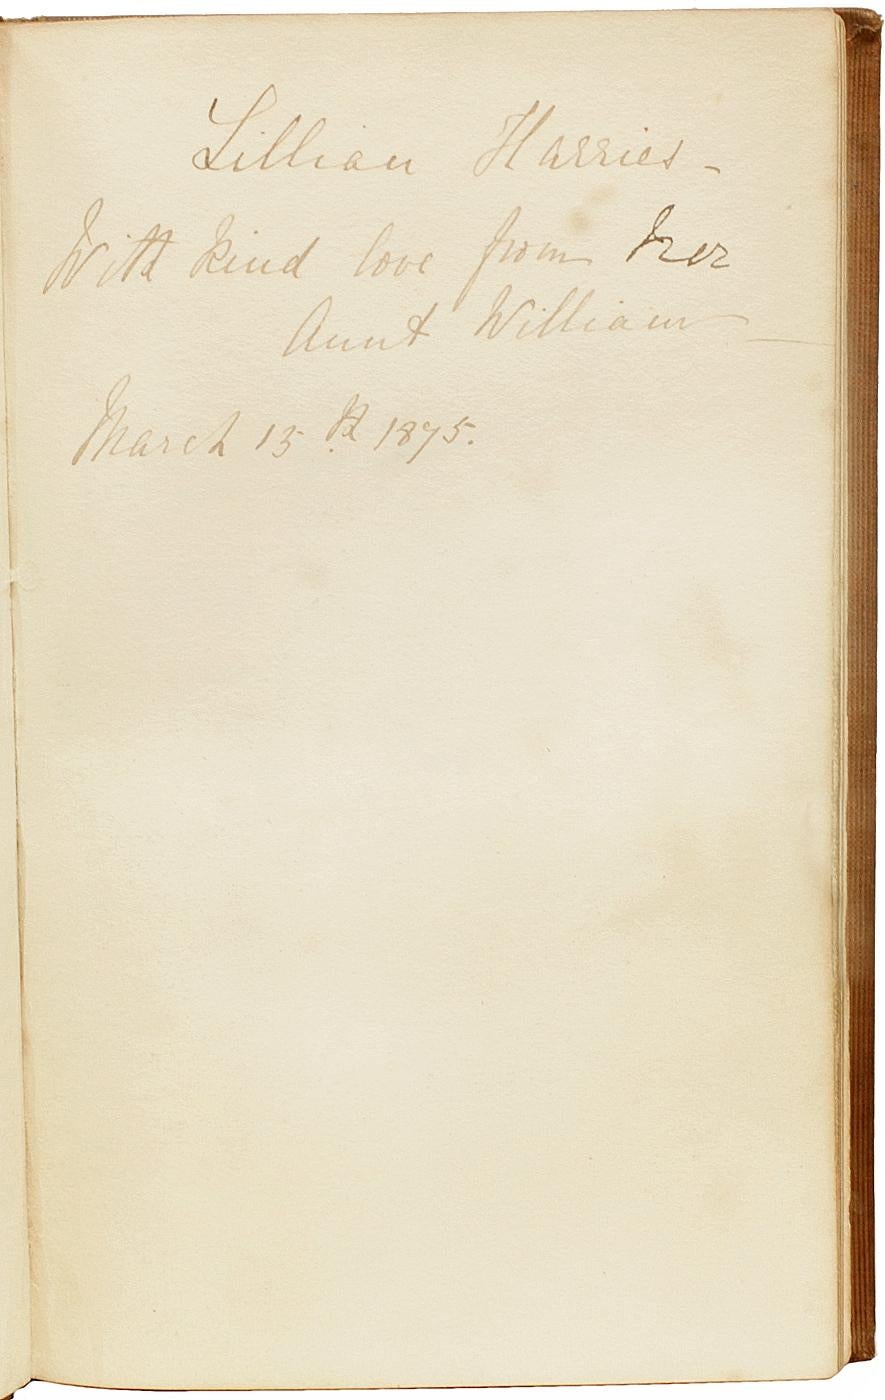 Lillian Harries -
With kind love from her
Aunt William —
March 15th 1875.